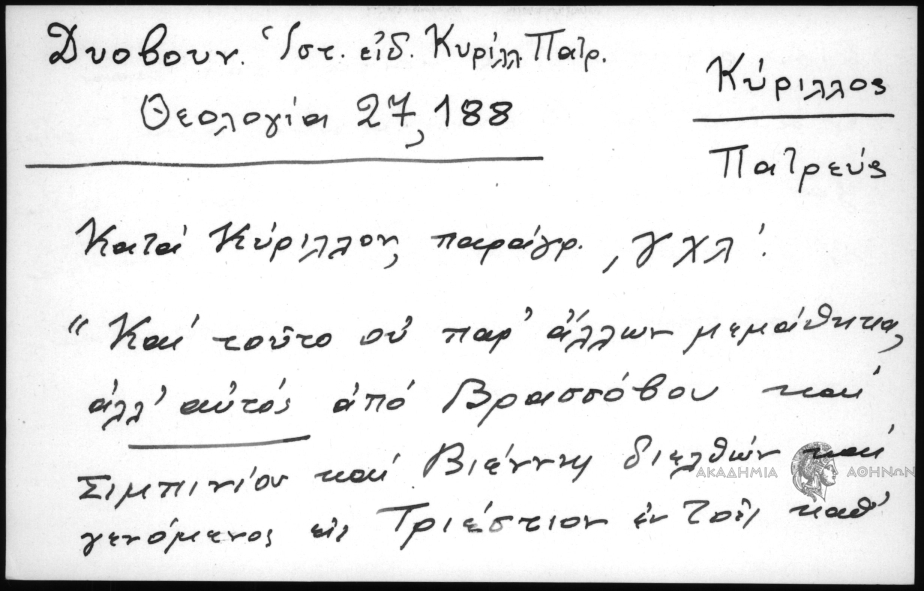 Δυοβουν. Ἱστ. εἰδ. Κυρίλλ. Πατρ.
Θεολογία 27, 188
Κύριλλος
Πατρεύς
Κατά Κύριλλον, παράγρ. ͵γχλʹ.
"Καί τοῦτο οὐ παρ' ἄλλων μεμάθηκα,
ἀλλ' αὐτός ἀπό Βρασσόβου καί
Σιμπινίου καί Βιέννην διελθών καί
γενόμενος εἰς Τριέστιον ἐν τοῖς καθ'
ΑΚΑΔΗΜΙΑ ΑΘΗΝΩΝ